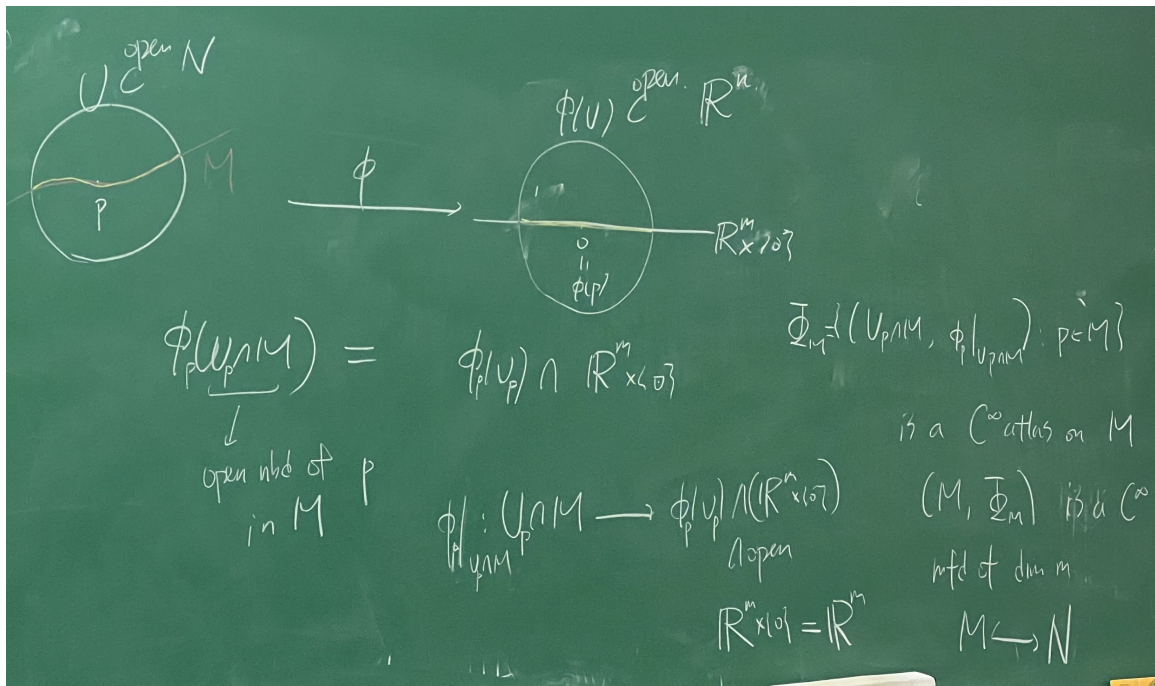 U ⊂ᵒᵖᵉⁿ N
M
p
ϕ
ϕ(U) ⊂ᵒᵖᵉⁿ· ℝⁿ
ℝᵐ×{0}
0
॥
ϕ(p)
ϕₚ(Uₚ∩M) = ϕₚ(Uₚ) ∩ ℝᵐ×{0}
↓
open nbd of p
in M
ϕₚ|_{Uₚ∩M} : Uₚ∩M → ϕₚ(Uₚ)∩(ℝᵐ×{0})
∩open
ℝᵐ×{0} = ℝᵐ
Φ_M = {(Uₚ∩M, ϕₚ|_{Uₚ∩M}) : p∈M}
is a C^∞ atlas on M
(M, Φ_M) is a C^∞
mfd of dim m
M ↪ N